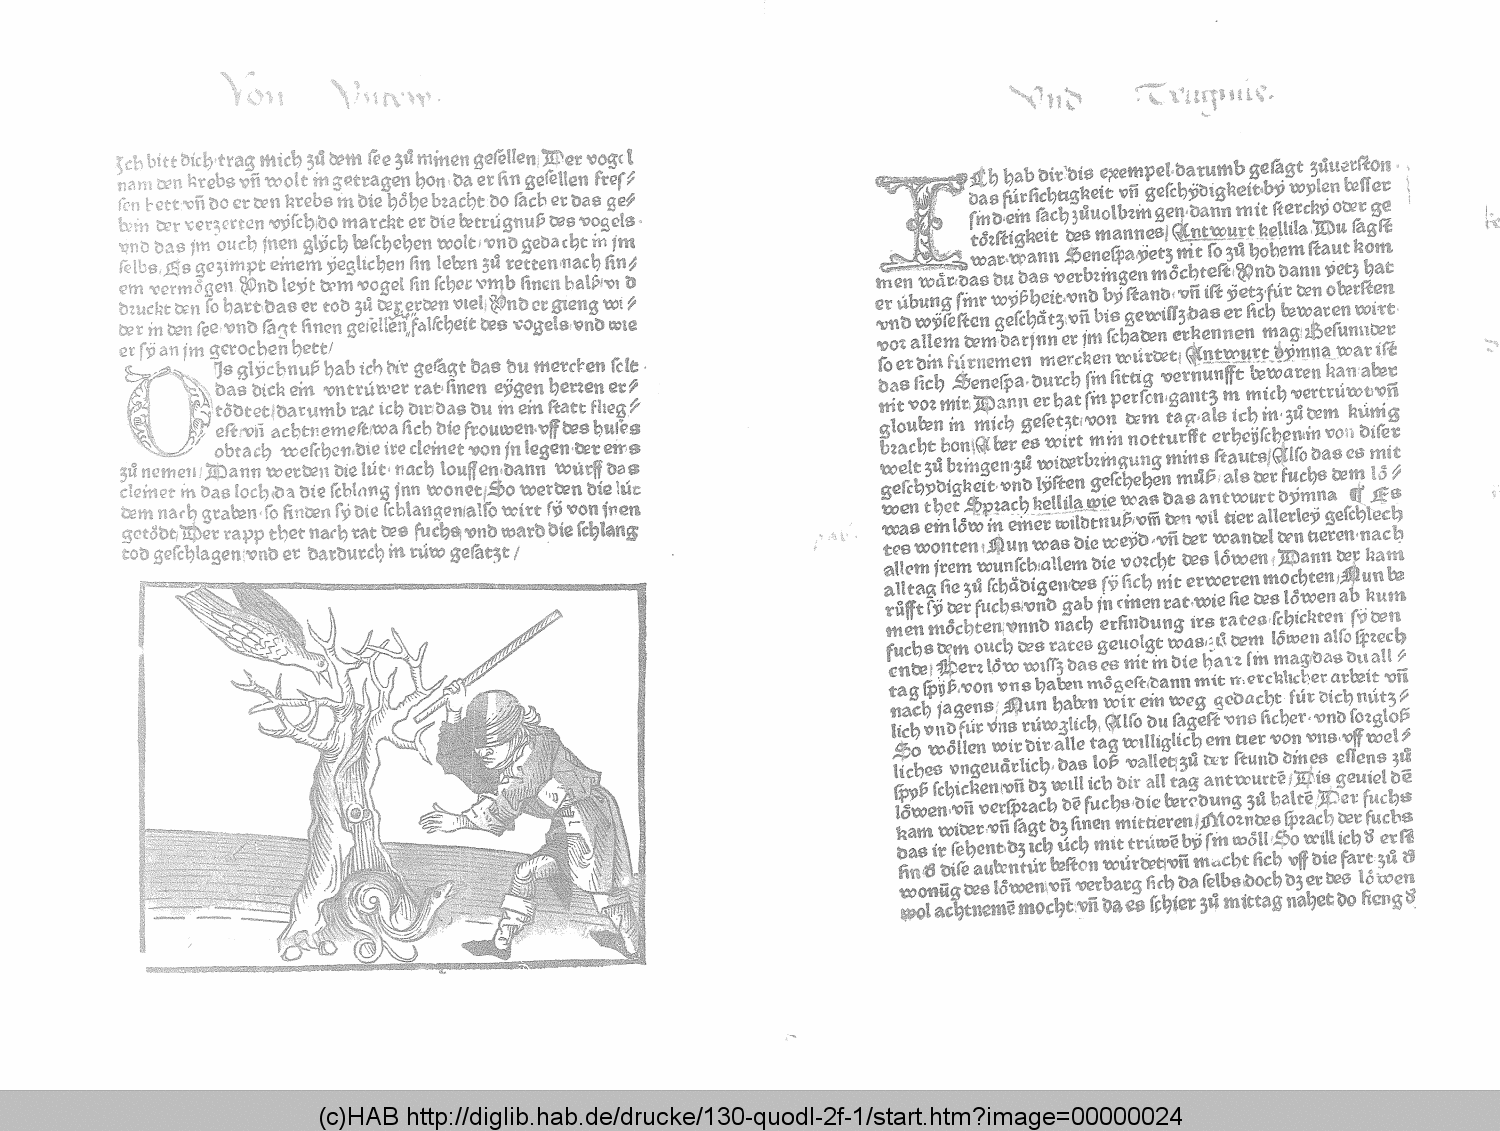 Von Vntrw.
Jch bitt dich trag mich zuͦ dem ſee zuͦ minen geſellen Der vogel
nam den krebs vn̄ wolt in getragen hon da er ſin geſellen freſ⸗
ſen hett vn̄ do er den krebs in die hoͤhe bracht do ſach er das ge⸗
bein der verzerten vyſch do marckt er die betruͤgnuß des vogels
vnd das jm ouch jnen glych beſchehen wolt vnd gedacht in jm
ſelbs Es gezimpt einem yeglichen ſin leben zuͦ retten nach ſin⸗
em vermoͤgen Vnd leyt dem vogel ſin ſcher vmb ſinen halß vnd
druckt den ſo hart das er tod zuͦ der erden viel Vnd er gieng wi⸗
der in den ſee vnd ſagt ſinen geſellen falſcheit des vogels vnd wie
er ſy an jm gerochen hett/
DJs glychnuß hab ich dir geſagt das du mercken ſelt
das dick ein vntruͤwer rat ſinen eygen herren er⸗
toͤdtet darumb rat ich dir das du in ein ſtatt flieg⸗
eſt vn̄ achtnemeſt wa ſich die frouwen vff des huſes
obtach weſchen die ire cleinet von jn legen der eins
zuͦ nemen Dann werden die luͤt nach louffen dann wuͤrff das
cleinet in das loch da die ſchlang jnn wonet So werden die luͤt
dem nach graben ſo finden ſy die ſchlangen alſo wirt ſy von jnen
getoͤdt Der rapp thet nach rat des fuchs vnd ward die ſchlang
tod geſchlagen vnd er dardurch in ruͤw geſatzt /
Vnd Trugnis.
Ich hab dir dis exempel darumb geſagt zuͦuerſton
das fuͤrſichtigkeit vn̄ geſchydigkeit by wylen beſſer
ſind ein ſach zuͦuolbringen dann mit ſtercky oder ge
toͤrſtigkeit des mannes Antwurt kellila Du ſagſt
war wann Seneſpa yetz nit ſo zuͦ hohem ſtaut kom
men waͤr das du das verbringen moͤchteſt Vnd dann yetz hat
er uͤbung ſinr wyßheit vnd by ſtand vn̄ iſt yetz fuͤr den oberſten
vnd wyſeſten geſchaͤtz vn̄ bis gewiſſz das er ſich bewaren wirt
vor allem dem darjnn er jm ſchaden erkennen mag Beſunnder
ſo er din fuͤrnemen mercken wuͤrdet Antwurt dymna war iſt
das ſich Seneſpa durch ſin ſittig vernunfft bewaren kan aber
nit vor mir Dann er hat ſin perſon gantz in mich vertruwt vn̄
glouben in mich geſetzt von dem tag als ich in zuͦ dem kuͤnig
bracht hon Aber es wirt min notturfft erheyſchen in von diſer
welt zuͦ bringen zuͦ widerbringung mins ſtauts Alſo das es mit
geſchydigkeit vnd lyſten geſchehen muͦß als der fuchs dem loͤ⸗
wen thet Sprach kellila wie was das antwurt dymna ¶ Es
was ein loͤw in einer wildtnuß vm̄ den vil tier allerley geſchlech
tes wonten Nun was die weyd vn̄ der wandel den tieren nach
allem jrem wunſch allem die vorcht des loͤwen Dann der kam
alltag ſie zuͦ ſchaͤdigen des ſy ſich nit erweren mochten Nun be
ruͤfft ſy der fuchs vnd gab jn einen rat wie ſie des loͤwen ab kum
men moͤchten vnnd nach erfindung irs rates ſchickten ſy den
fuchs dem ouch des rates geuolgt was zuͦ dem loͤwen alſo ſprech
ende Herr loͤw wiſſz das es nit in die harr ſin mag das du all⸗
tag ſpyß von vns haben moͤgeſt dann mit mercklicher arbeit vn̄
nach jagens Nun haben wir ein weg gedacht fuͤr dich nuͤtz⸗
lich vnd fuͤr vns ruͤwglich Alſo du ſageſt vns ſicher vnd ſorgloß
So woͤllen wir dir alle tag williglich ein tier von vns vff wel⸗
liches vngeuaͤrlich das loß vallet zuͦ der ſtund dines eſſens zuͦ
ſpyß ſchicken vn̄ dz will ich dir all tag antwurtē Dis geuiel dē
loͤwen vn̄ verſprach dē fuchs die beredung zuͦ haltē Der fuchs
kam wider vn̄ ſagt dz ſinen mittieren Morndes ſprach der fuchs
das ir ſehent dz ich uͤch mit truͤwē by ſin woͤll So will ich d erſt
ſin d diſe aubentuͤr beſton wuͤrdet vn̄ macht ſich vff die fart zuͦ d
wonūg des loͤwen vn̄ verbarg ſich da ſelbs doch dz er des loͤwen
wol achtnemē mocht vn̄ da es ſchier zuͦ mittag nahet do fieng d
(c)HAB http://diglib.hab.de/drucke/130-quodl-2f-1/start.htm?image=00000024